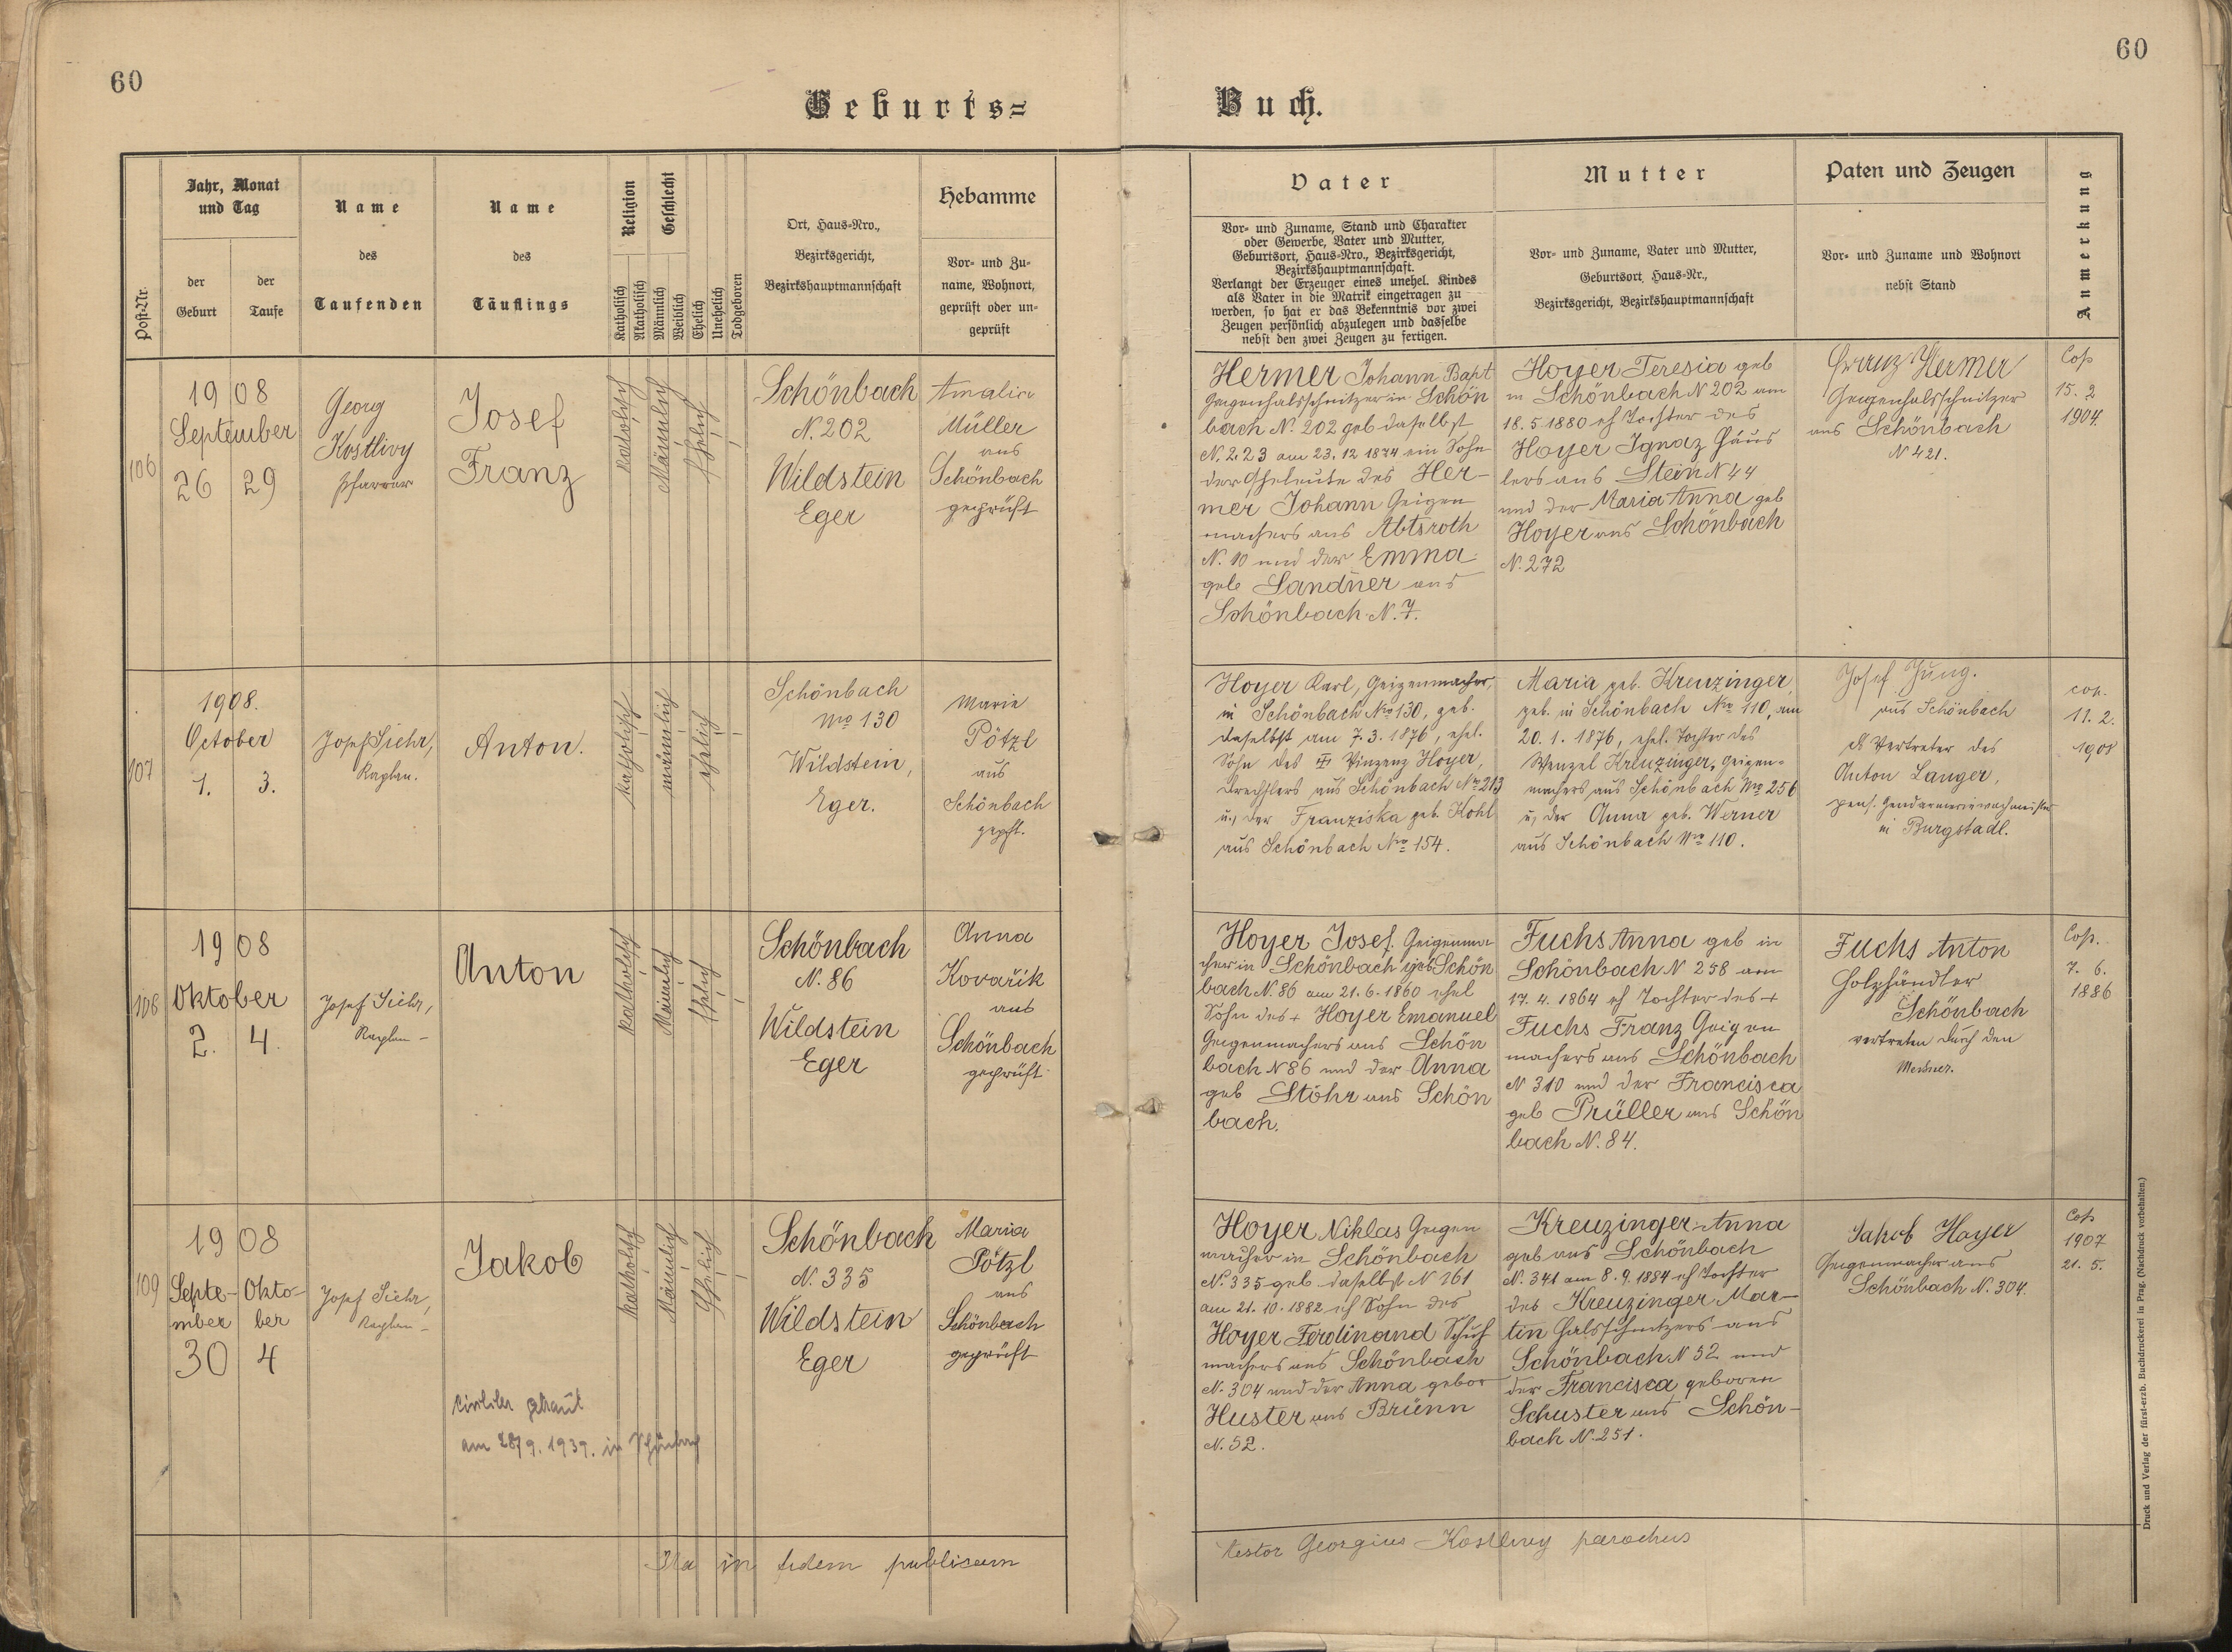 60
60
Geburts=
Buch.
Post-Nr.
Jahr, Monat
und Tag
der
Geburt
der
Taufe
Name
des
Taufenden
Name
des
Täuflings
Religion
Katholisch
Akatholisch
Geschlecht
Männlich
Weiblich
Ehelich
Unehelich
Todgeboren
Ort, Haus-Nro.,
Bezirksgericht,
Bezirkshauptmannschaft
Hebamme
Vor- und Zu-
name, Wohnort,
geprüft oder un-
geprüft
Vater
Vor- und Zuname, Stand und Charakter
oder Gewerbe, Vater und Mutter,
Geburtsort, Haus-Nro., Bezirksgericht,
Bezirkshauptmannschaft.
Verlangt der Erzeuger eines unehel. Kindes
als Vater in die Matrik eingetragen zu
werden, so hat er das Bekenntnis vor zwei
Zeugen persönlich abzulegen und dasselbe
nebst den zwei Zeugen zu fertigen.
Mutter
Vor- und Zuname, Vater und Mutter,
Geburtsort, Haus-Nr.,
Bezirksgericht, Bezirkshauptmannschaft
Paten und Zeugen
Vor- und Zuname und Wohnort
nebst Stand
Anmerkung
106
1908
September
26 29
Georg
Kostlivy
Pfarrer
Josef
Franz
Katholisch
Männlich
Ehelich
Schönbach
N. 202
Wildstein
Eger
Amalia
Müller
aus
Schönbach
geprüft
Hermer Johann Bapt
Geigenhalsschnitzer in Schön
bach N. 202 geb daselbst
N. 223 am 23. 12 1874 ein Sohn
der Eheleute des Her-
mer Johann Geigen
machers aus Abtsroth
N. 10 und der Emma
geb Sandner aus
Schönbach N. 7.
Hoyer Teresia geb
in Schönbach N 202 am
18. 5 1880 eh Tochter des
Hoyer Ignaz Häus
lers aus Stein N 44
und der Maria Anna geb
Hoyer aus Schönbach
N. 272
Franz Hermer
Geigenhalsschnitzer
aus Schönbach
N 421.
Cop
15. 2
1904.
107
1908.
October
1. 3.
Josef Siehr,
Kaplan.
Anton.
katholisch
männlich
ehelich
Schönbach
Nro 130
Wildstein,
Eger.
Marie
Pötzl
aus
Schönbach
gepft.
Hoyer Karl, Geigenmacher,
in Schönbach Nro 130, geb.
daselbst am 7. 3. 1876, ehel.
Sohn des Vinzenz Hoyer,
Drechslers aus Schönbach Nro 213
u. der Franziska geb. Kohl
aus Schönbach Nro 154.
Maria geb. Kreuzinger,
geb. in Schönbach Nro 110, am
20. 1. 1876, ehel. Tochter des
Wenzel Kreuzinger, Geigen-
machers aus Schönbach Nro 256
u. der Anna geb. Werner
aus Schönbach Nro 110.
Josef Jung.
aus Schönbach
als Vertreter des
Anton Langer,
pens. Gendarmeriewachmeister
in Burgstadl.
cop.
11. 2.
1901
108
1908
Oktober
2. 4.
Josef Siehr,
Kaplan -
Anton
Katholisch
Männlich
Ehelich
Schönbach
N. 86
Wildstein
Eger
Anna
Kovařik
aus
Schönbach
geprüft
Hoyer Josef. Geigenma
cher in Schönbach geb Schön
bach N. 86 am 21. 6. 1860 ehel
Sohn des + Hoyer Emanuel
Geigenmachers aus Schön
bach N 86 und der Anna
geb Stöhr aus Schön
bach.
Fuchs Anna geb in
Schönbach N 258 am
17. 4. 1864 eh Tochter des +
Fuchs Franz Geigen
machers aus Schönbach
N 310 und der Francisca
geb Prüller aus Schön
bach N. 84.
Fuchs Anton
Holzhändler
Schönbach
vertreten durch den
Mesner.
Cop.
7. 6.
1886
109
1908
Septe- Okto-
mber ber
30 4
Josef Siehr,
Kaplan -
Jakob
Katholisch
Männlich
Ehelich
Schönbach
N. 335
Wildstein
Eger
Maria
Pötzl
aus
Schönbach
geprüft
Hoyer Niklas Geigen
macher in Schönbach
N. 335 geb daselbst N 161
am 21. 10. 1882 eh Sohn des
Hoyer Ferdinand Schuh
machers aus Schönbach
N. 304 und der Anna gebor
Huster aus Brünn
N. 52.
Kreuzinger Anna
geb aus Schönbach
N. 341 am 8. 9. 1884 eh Tochter
des Kreuzinger Mar-
tin Halsschnitzers aus
Schönbach N 52 und
der Francisca geboren
Schuster aus Schön-
bach N. 251.
Jakob Hoyer
Geigenmacher aus
Schönbach N. 304.
Cop
1907
21. 5.
Civiliter getraut
am 28/9. 1939. in Schönbach
Ita in fidem publicam
testor Georgius Kostlivy parochus
Druck und Verlag der fürst-erzb. Buchdruckerei in Prag. (Nachdruck vorbehalten.)